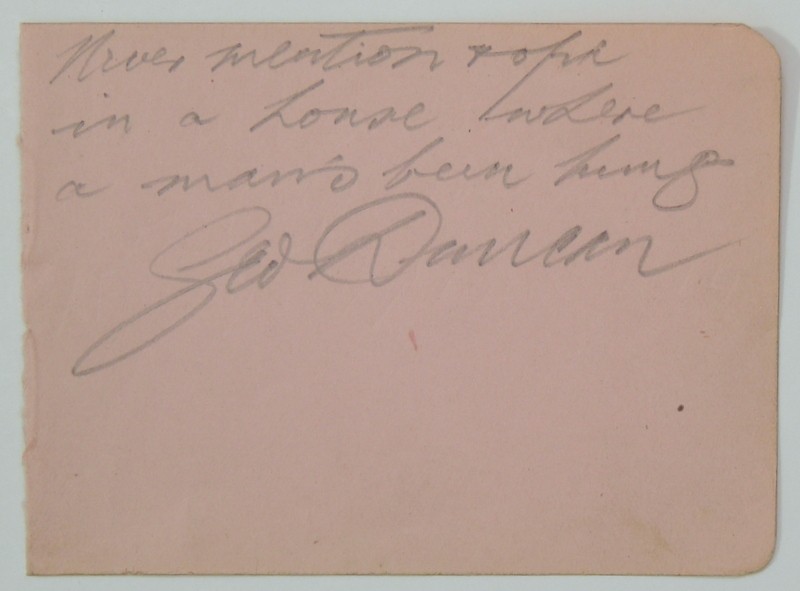 Never mention rope
in a house where
a man's been hung
Geo Duncan